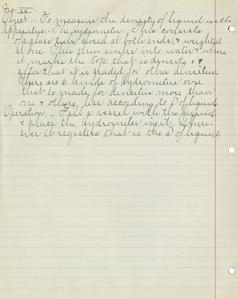 XV.
Object:- To measure the density of liquid with
Apparatus - The hydrometer, This consists
of a glass tube closed at both ends & weighted
at one. This thus sinks into water & where
it marks the top that is density 1 &
after that it is graded for other densities
There are 2 kinds of hydrometers one
that is made for densities more than
one & other, less according to D of liquid
Operation - Fill a vessel with the liquid
& place the hydrometer in it.
ever it registers that is the D of liquid